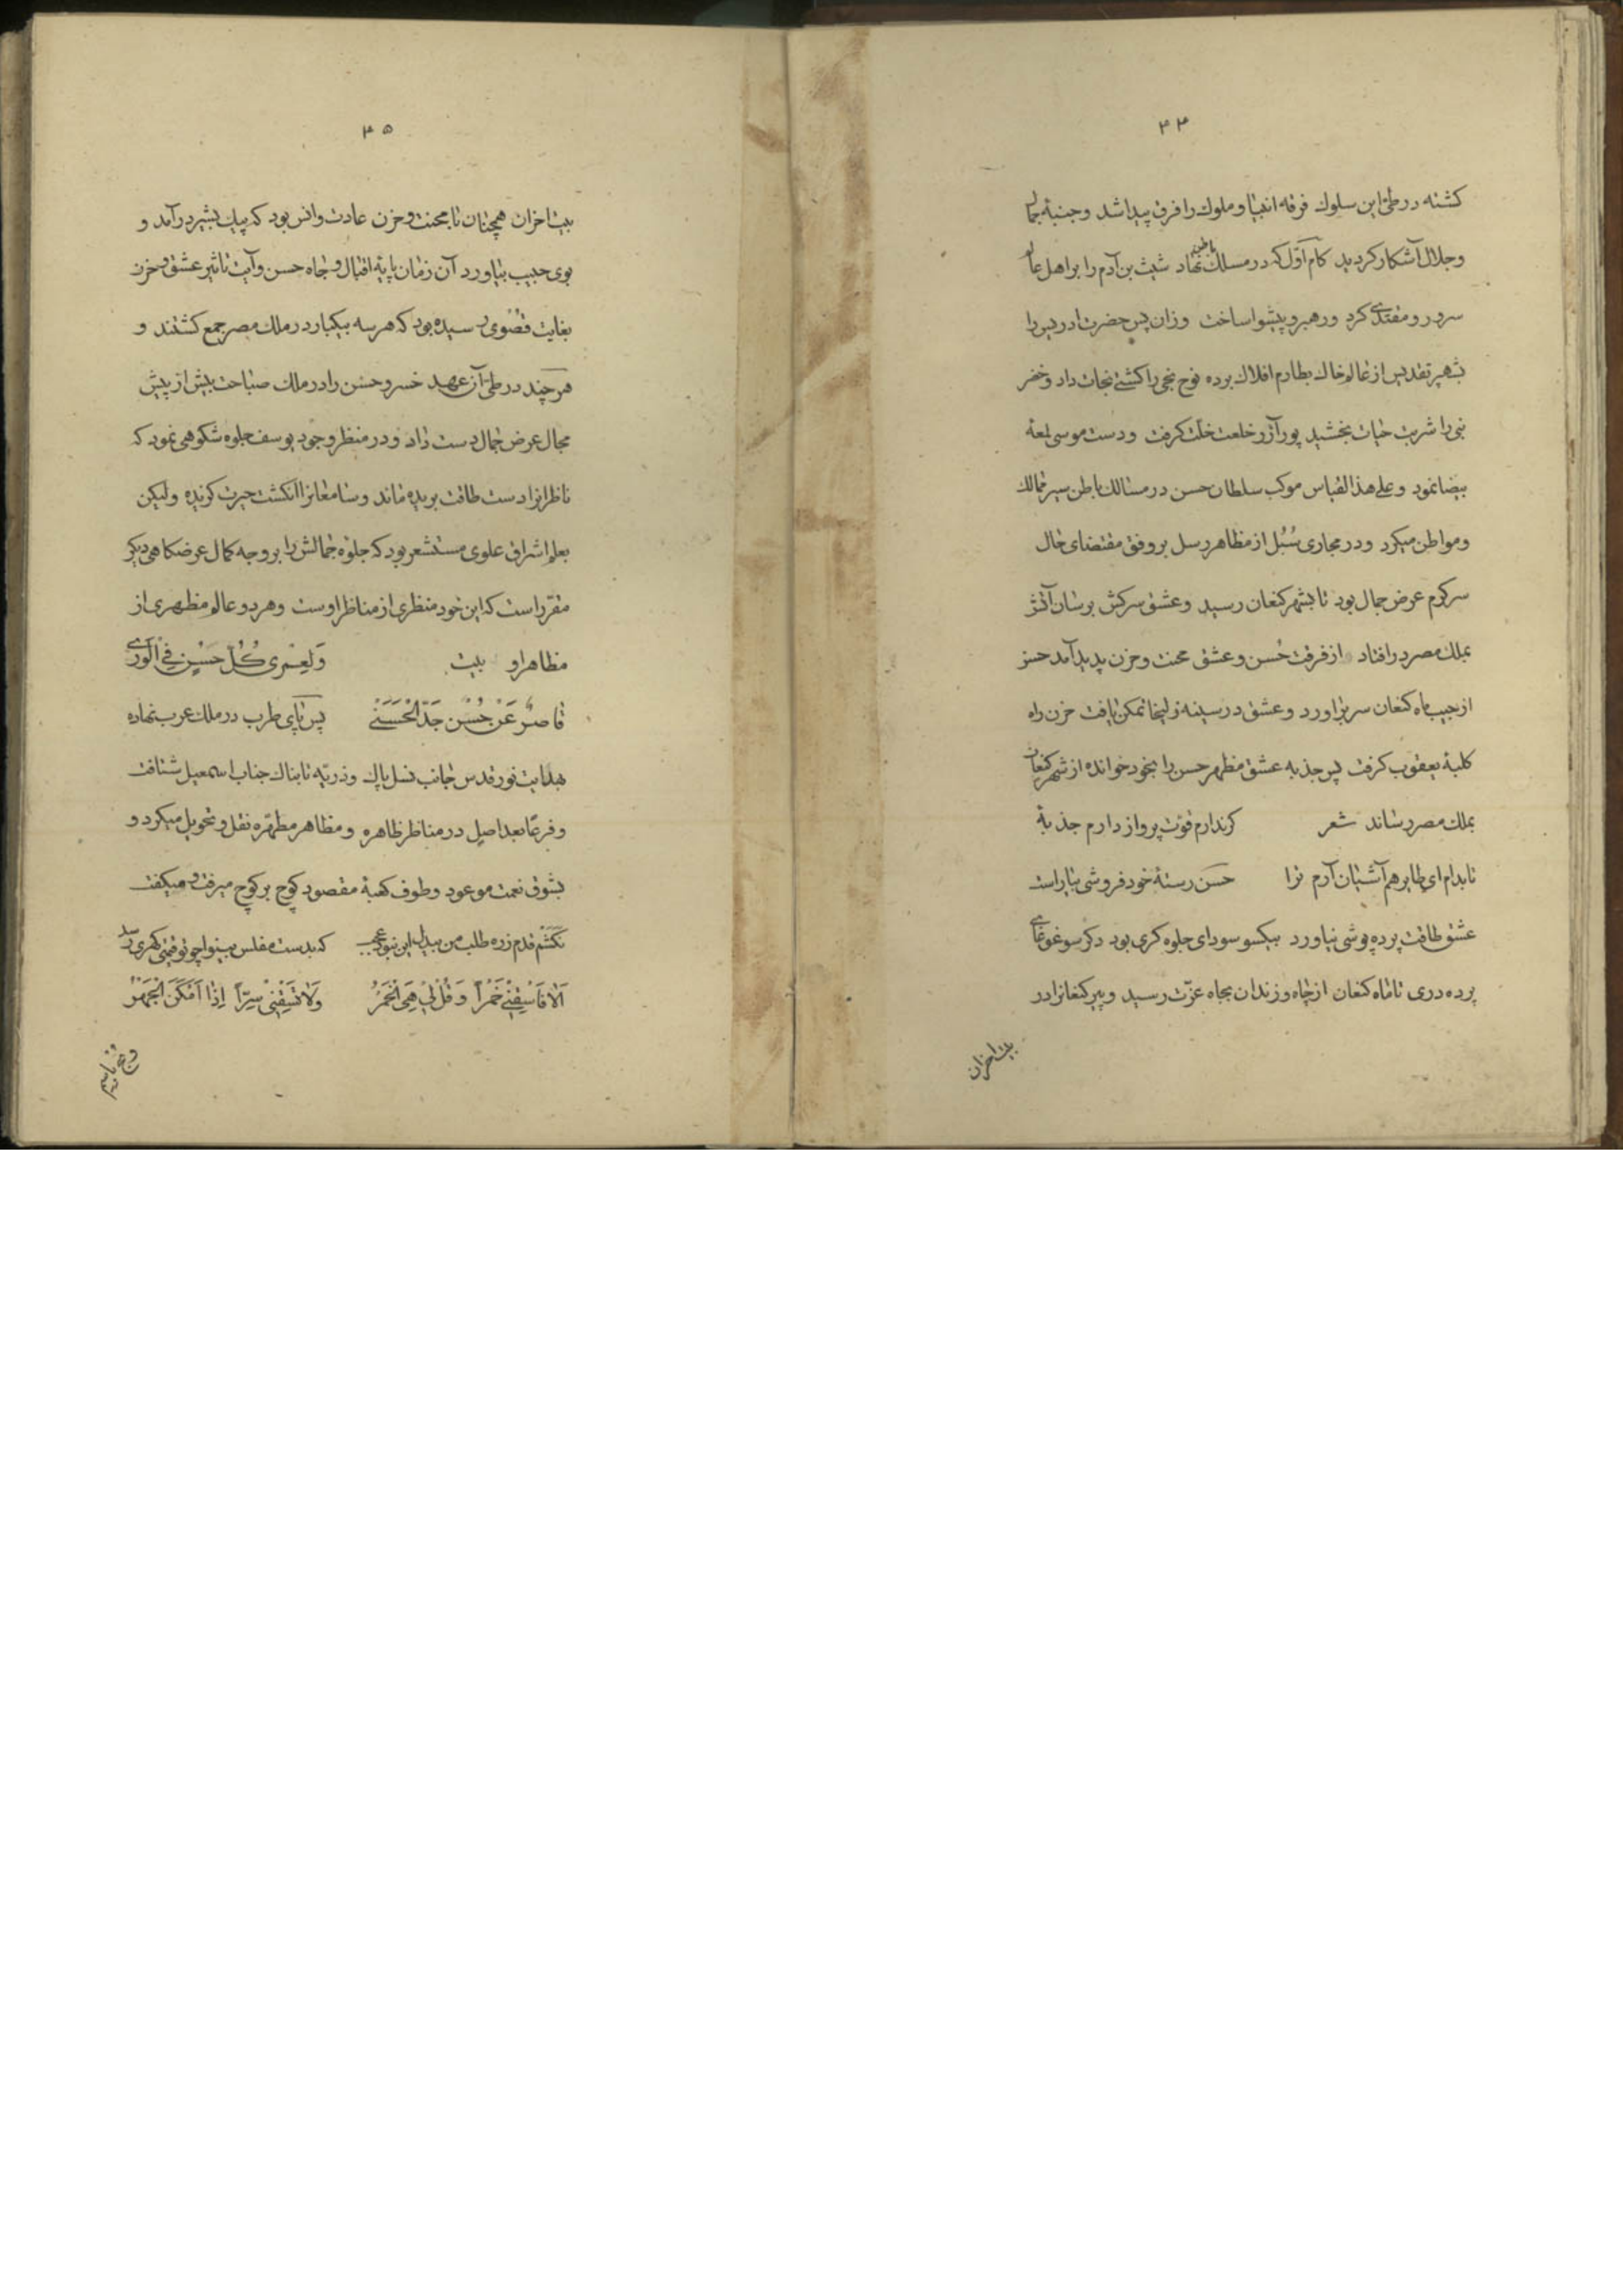 ۳۴
کشته در طی این سلوك فرقه انبیا و ملوك را فرق پیدا شد و جنبۀ جمال
و جلال آشکار کردید کام اوّل که در مسلك باطن نهاد شیث بن آدم را بر اهل عالم
سرور و مقتدی کرد و رهبر و پیشوا ساخت وزان پس حضرت ادریس را
بشهپر تقدیس از عالم خاك بطارم افلاك برده نوح نجی را کشتی نجات داد و خضر
نبی را شربت حیات بخشید پور آزر خلعت خلّت کرفت و دست موسی لمعۀ
بیضا نمود و علی هذا القیاس موکب سلطان حسن در مسالك باطن سیر ممالك
و مواطن میکرد و در مجاری سُبُل از مظاهر رسل بر وفق مقتضای حال
سرکرم عرض جمال بود تا بشهر کنعان رسید و عشق سرکش برسان آتش
بملك مصر در افتاد از فرقت حُسن و عشق محنت و حزن پدید آمد حسن
از جیب ماه کنعان سر برآورد و عشق در سینه زلیخا تمکن یافت حزن راه
کلبۀ یعقوب کرفت پس جذبه عشق مظهر حسن را بخود خوانده از شهر کنعان
بملك مصر رساند شعر کر ندارم قوّت پرواز دارم جذبۀ
تا بدام ای طایر هم آشیان آرم ترا حسن رستۀ خود فروشی بیاراست
عشق طاقت پرده پوشی نیاورد بیکسو سودای جلوه کری بود دکر سو غوغای
پرده دری تا ماه کنعان از چاه و زندان بجاه عزّت رسید و پیر کنعانرا در
بیت احزان
۳۵
بیت احزان همچنان با محنت و حزن عادت و انس بود که پیك بشیر در آمد و
بوی حبیب بیاورد آن زمان پایۀ اقبال و جاه حسن و آیت تاثیر عشق و حزن
بغایت قصوی رسیده بود که هر سه بیکبار در ملك مصر جمع کشتند و
هر چند در طی آن عهد خسرو حسن را در ملك صباحت بیش از پیش
مجال عرض جمال دست داد و در منظر وجود یوسف جلوه شکوهی نمود که
ناظرانرا دست طاقت بریده ماند و سامعانرا انکشت حیرت کزیده ولیکن
بعلم اشراق علوی مستشعر بود که جلوه جمالش را بر وجه کمال عرضکاهی دیکر
مقرر است که این خود منظری از مناظر اوست و هر دو عالم مظهری از
مظاهر او بیت وَلَعَمری کُلّ حُسْنٍ فِی الْوَریٰ
قاصرٌ عَنْ حُسْنِ جَدّ الْحَسَنَیْ پس پای طرب در ملك عرب نهاده
بهدایت نور قدس جانب نسل پاك و ذریّه تابناك جناب اسمعیل شتافت
و فرعًا بعد اصلٍ در مناظر ظاهره و مظاهر مطهّره نقل و تحویل میکرد و
بشوق نعمت موعود و طوف کعبۀ مقصود کوچ بر کوچ میرفت و میکفت
نکَشَم قدم زره طلب من بیدل این نبود عجب که بدست مفلس بینوا چو تو قیمتی کهری رسد
اَلا فَاسْقِنِی خَمْراً وَ قُلْ لی هِیَ الْخَمْرُ وَلا تَسْقِنی سِرّاً اِذا اَمْکَنَ الْجَهْرُ